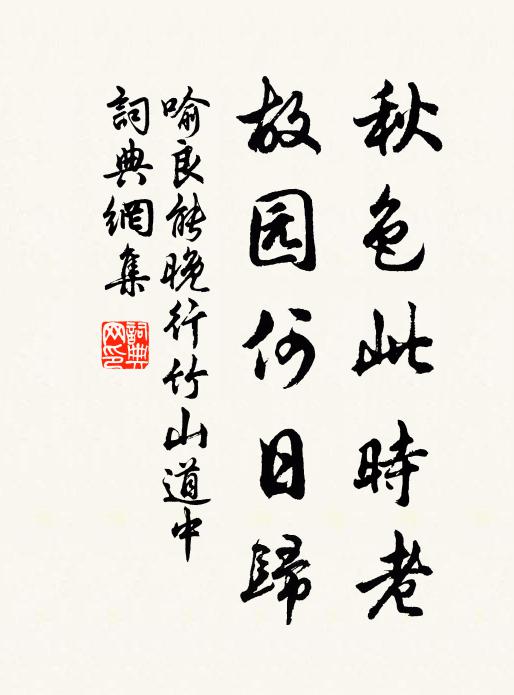 秋色此時老
故园何日歸
喻良能晚行竹山道中
詞典網集
詞典
网印